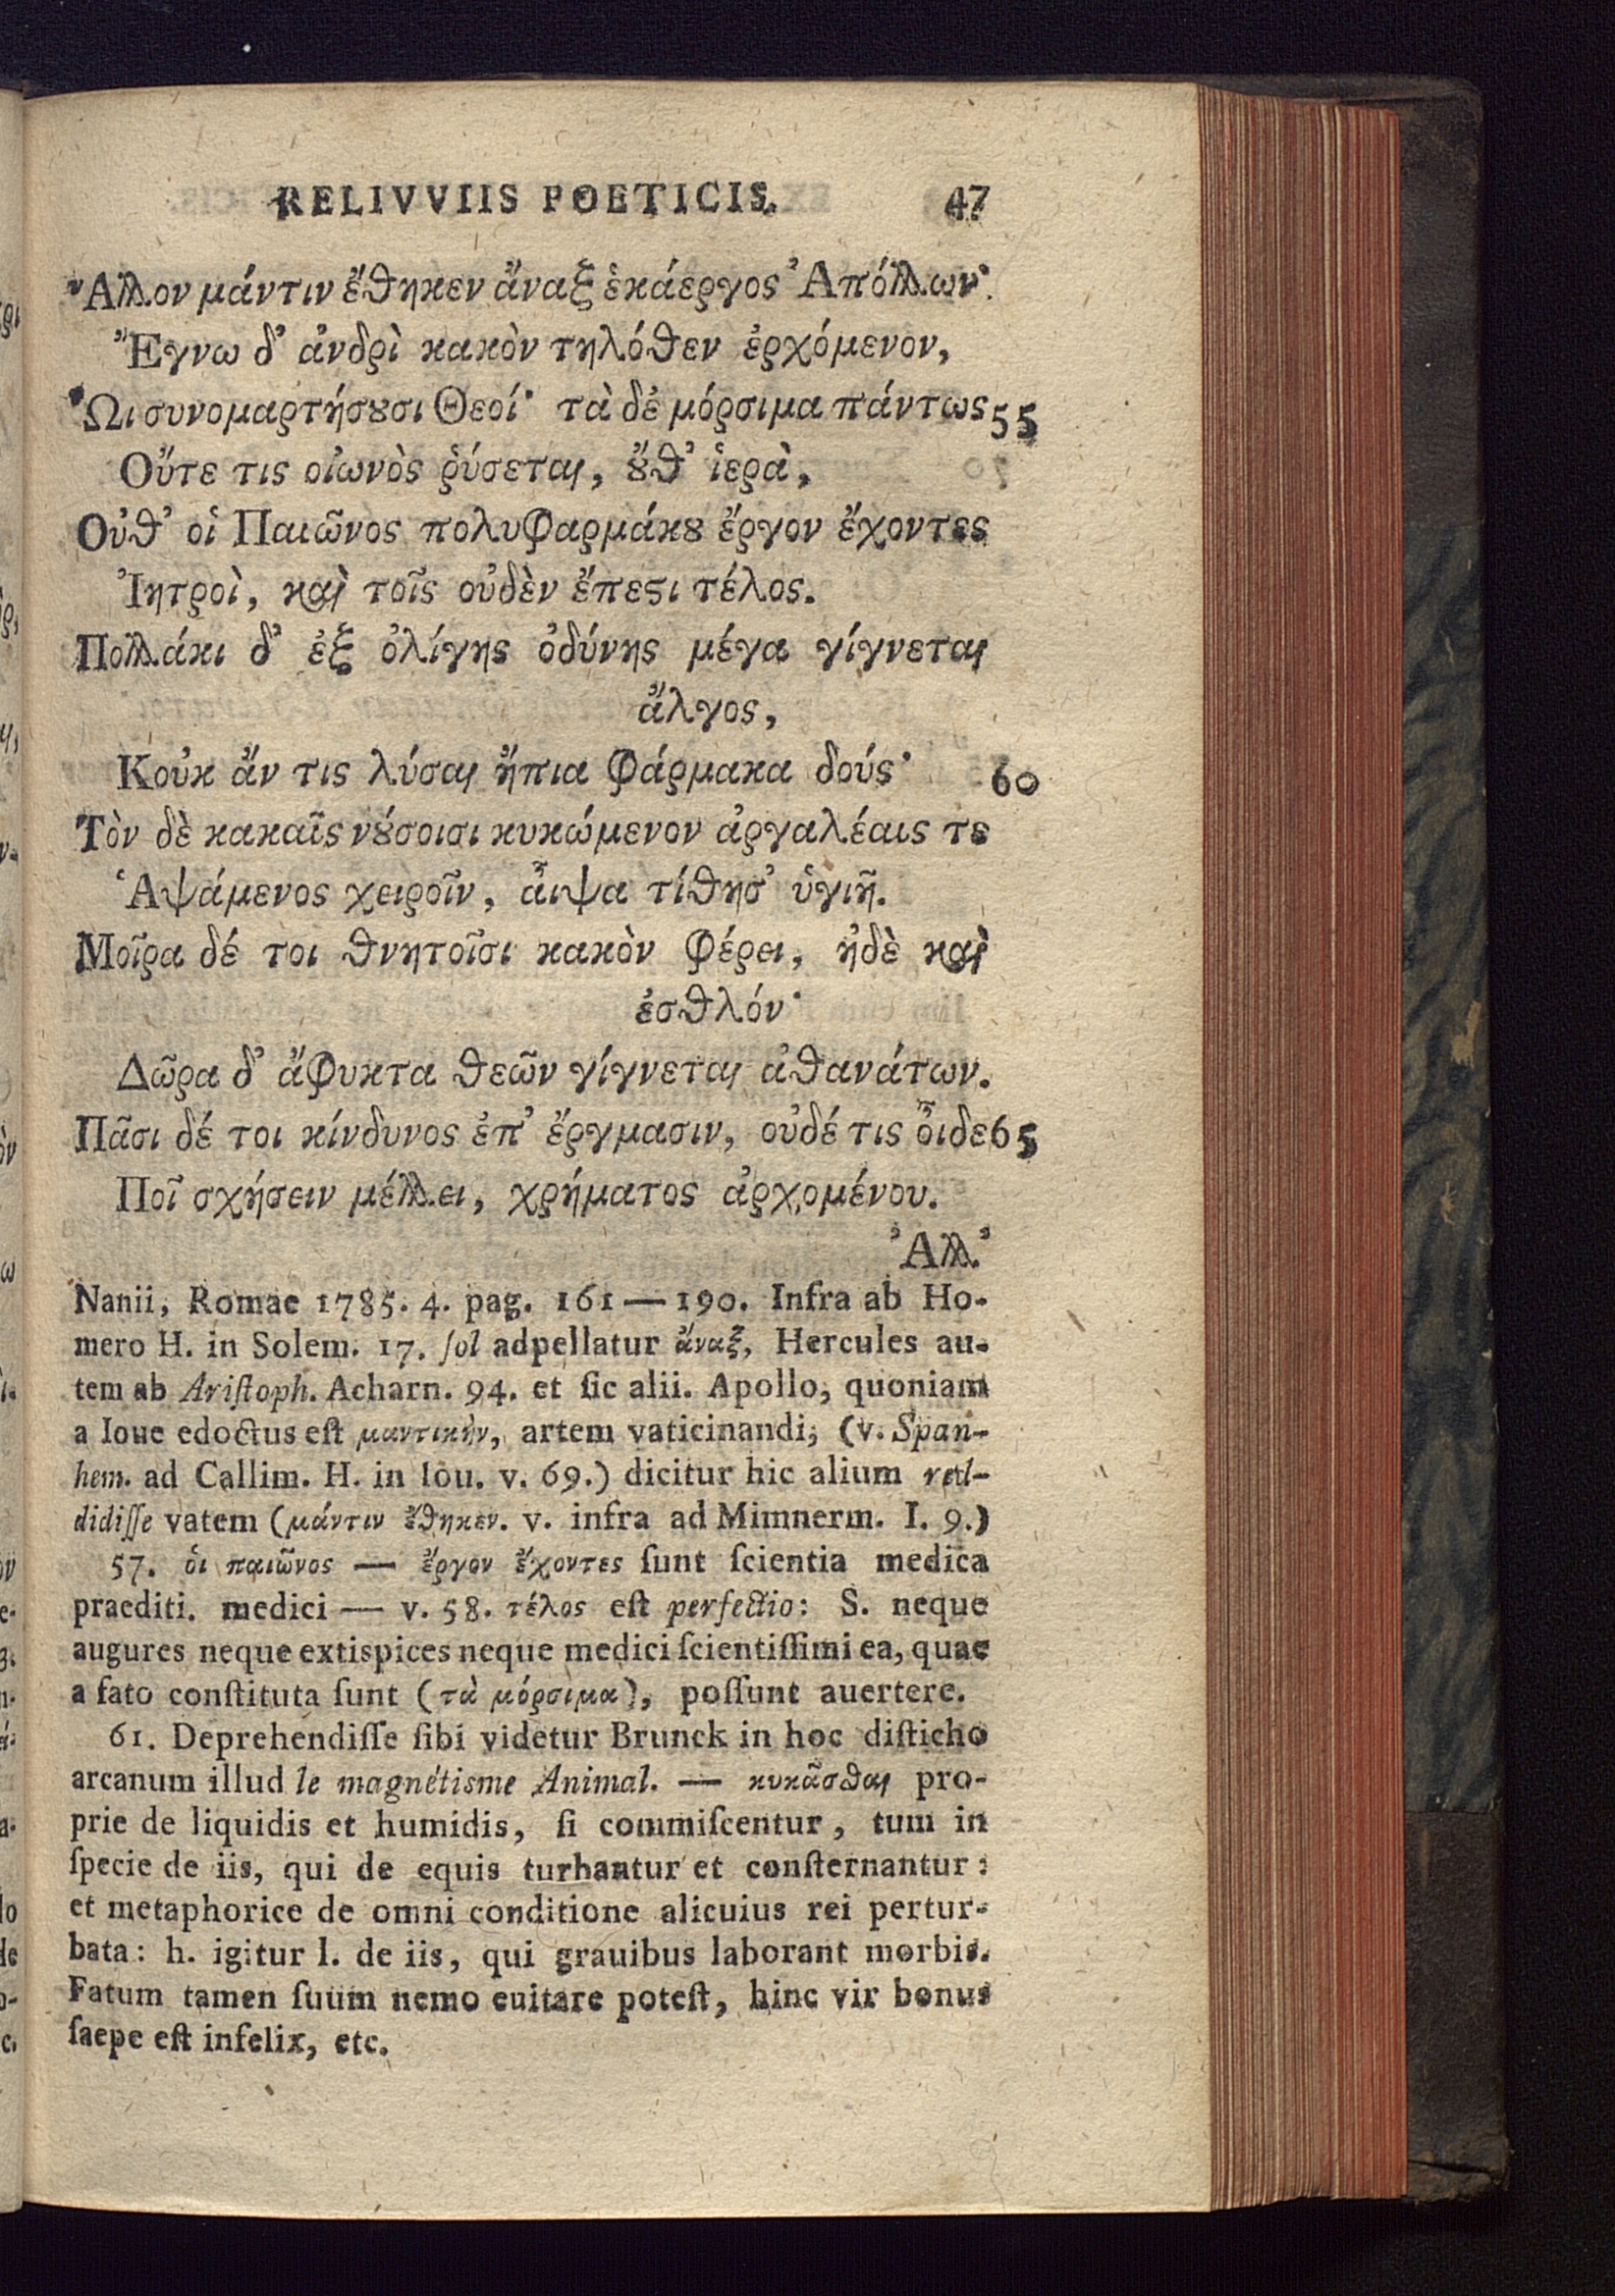 RELIVVIIS POETICIS. 47
Ἄλλον μάντιν ἔθηκεν ἄναξ ἑκάεργος Ἀπόλλων·
Ἔγνω δ' ἀνδρὶ κακὸν τηλόθεν ἐρχόμενον,
Ὧι συνομαρτήσουσι Θεοί· τὰ δὲ μόρσιμα πάντως 55
Οὔτε τις οἰωνὸς ῥύσεται, οὔθ' ἱερὰ,
Οὐθ' οἱ Παιῶνος πολυφαρμάκου ἔργον ἔχοντες
Ἰητροὶ, καὶ τοῖς οὐδὲν ἔπεστι τέλος.
Πολλάκι δ' ἐξ ὀλίγης ὀδύνης μέγα γίγνεται
ἄλγος,
Κοὐκ ἄν τις λύσαι ἤπια φάρμακα δούς· 60
Τὸν δὲ κακαῖς νούσοισι κυκώμενον ἀργαλέαις τε
Ἁψάμενος χειροῖν, ἆιψα τίθησ' ὑγιῆ.
Μοῖρα δέ τοι θνητοῖσι κακὸν φέρει, ἠδὲ καὶ
ἐσθλόν·
Δῶρα δ' ἄφυκτα θεῶν γίγνεται ἀθανάτων.
Πᾶσι δέ τοι κίνδυνος ἐπ' ἔργμασιν, οὐδέ τις ὁῖδε 65
Ποῖ σχήσειν μέλλει, χρήματος ἀρχομένου.
Ἀλλ'
Nanii, Romae 1785. 4. pag. 161—190. Infra ab Ho-
mero H. in Solem. 17. ſol adpellatur ἄναξ, Hercules au-
tem ab Ariſtoph. Acharn. 94. et ſic alii. Apollo, quoniam
a Ioue edoctus eſt μαντικὴν, artem vaticinandi; (v. Span-
hem. ad Callim. H. in Iou. v. 69.) dicitur hic alium red-
didiſſe vatem (μάντιν ἔθηκεν. v. infra ad Mimnerm. I. 9.)
57. ὁι παιῶνος — ἔργον ἔχοντες ſunt ſcientia medica
praediti. medici — v. 58. τέλος eſt perfectio: S. neque
augures neque extispices neque medici ſcientiſſimi ea, quae
a fato conſtituta ſunt (τὰ μόρσιμα), poſſunt auertere.
61. Deprehendiſſe ſibi videtur Brunck in hoc diſticho
arcanum illud le magnétisme Animal. — κυκᾶσθαι pro-
prie de liquidis et humidis, ſi commiſcentur, tum in
ſpecie de iis, qui de equis turbantur et conſternantur:
et metaphorice de omni conditione alicuius rei pertur-
bata: h. igitur l. de iis, qui grauibus laborant morbis.
Fatum tamen ſuum nemo euitare poteſt, hinc vir bonus
ſaepe eſt infelix, etc.